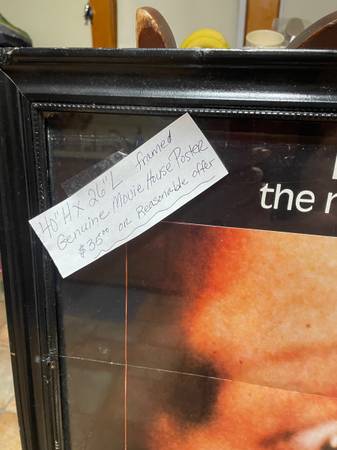 40"H X 26"L framed
Genuine Movie House Poster
$35.00 or Reasonable offer
the